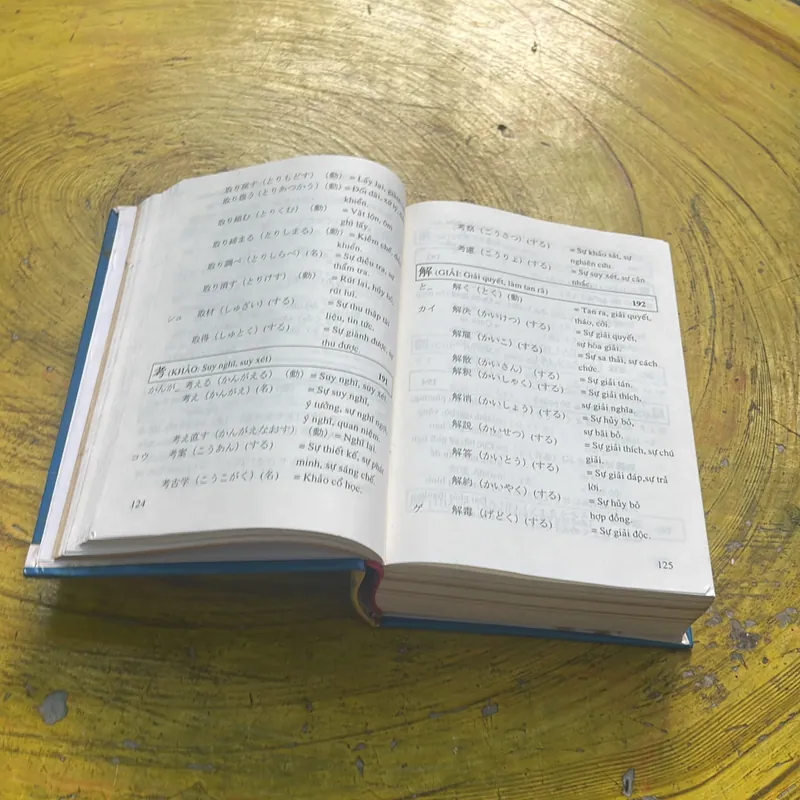 取り戻す（とりもどす） （動） = Lấy lại,
取り扱う（とりあつかう）（動） = Đối đãi, xử lý, điều
khiển.
取り組む（とりくむ） （動） = Vật lộn, ôm
ghì lấy.
取り締まる（とりしまる） （動） = Kiềm chế, điều
khiển.
取り調べ（とりしらべ）（名） = Sự điều tra, sự
thẩm tra.
取り消す（とりけす） （動） = Rút lại, hủy bỏ,
rút lui.
シュ 取材（しゅざい）（する） = Sự thu thập tài
liệu, tin tức.
取得（しゅとく）（する） = Sự giành được, sự
thu được.
考 (KHẢO: Suy nghĩ, suy xét) 191
かんが_ 考える（かんがえる） （動） = Suy nghĩ, suy xét
考え（かんがえ）（名） = Sự suy nghĩ,
ý tưởng, sự nghi ngờ,
ý nghĩ, quan niệm.
考え直す（かんがえなおす） （動） = Nghĩ lại.
コウ 考案（こうあん）（する） = Sự thiết kế, sự phát
minh, sự sáng chế.
考古学（こうこがく）（名） = Khảo cổ học.
124
考察（こうさつ）（する） = Sự khảo sát, sự
nghiên cứu.
考慮（こうりょ）（する） = Sự suy xét, sự cân
nhắc.
解 (GIẢI: Giải quyết, làm tan rã) 192
と_ 解く（とく）（動） = Tan ra, giải quyết,
tháo, cởi.
カイ 解決（かいけつ）（する） = Sự giải quyết,
sự hòa giải.
解雇（かいこ）（する） = Sự sa thải, sự cách
chức.
解散（かいさん）（する） = Sự giải tán.
解釈（かいしゃく）（する） = Sự giải thích,
sự giải nghĩa.
解消（かいしょう）（する） = Sự hủy bỏ,
sự bãi bỏ.
解説（かいせつ）（する） = Sự giải thích, sự chú
giải.
解答（かいとう）（する） = Sự giải đáp,sự trả
lời.
解約（かいやく）（する） = Sự hủy bỏ
hợp đồng.
ゲ 解毒（げどく）（する） = Sự giải độc.
125